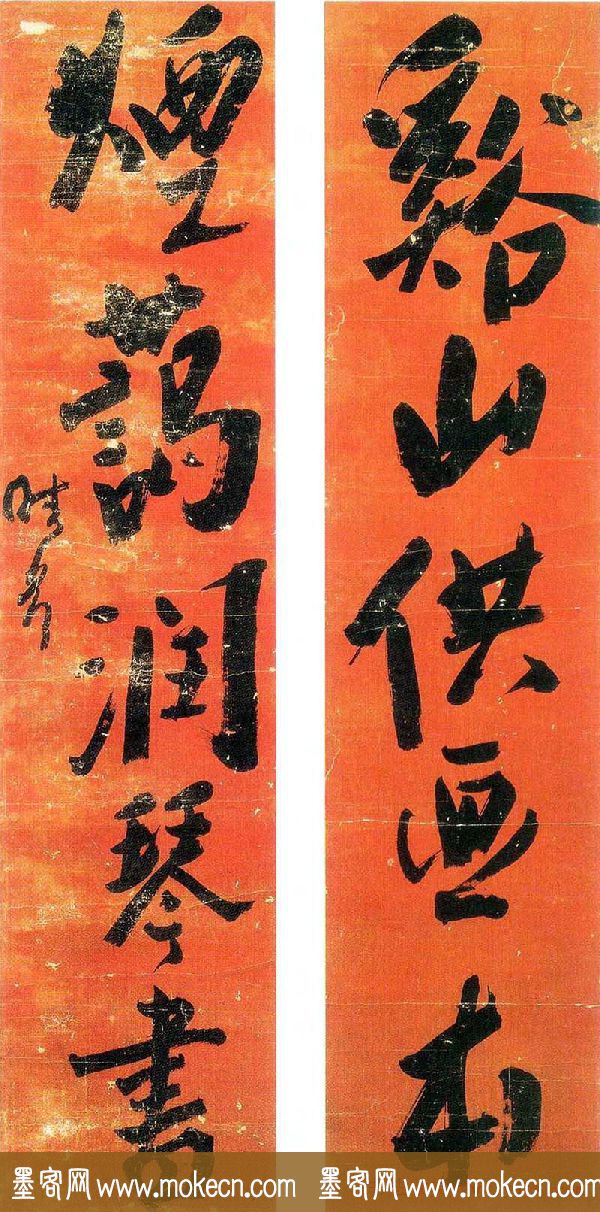 谿山供画本
煙藹潤琴書
墨客网 www.mokecn.com 墨客网 www.mokecn.com